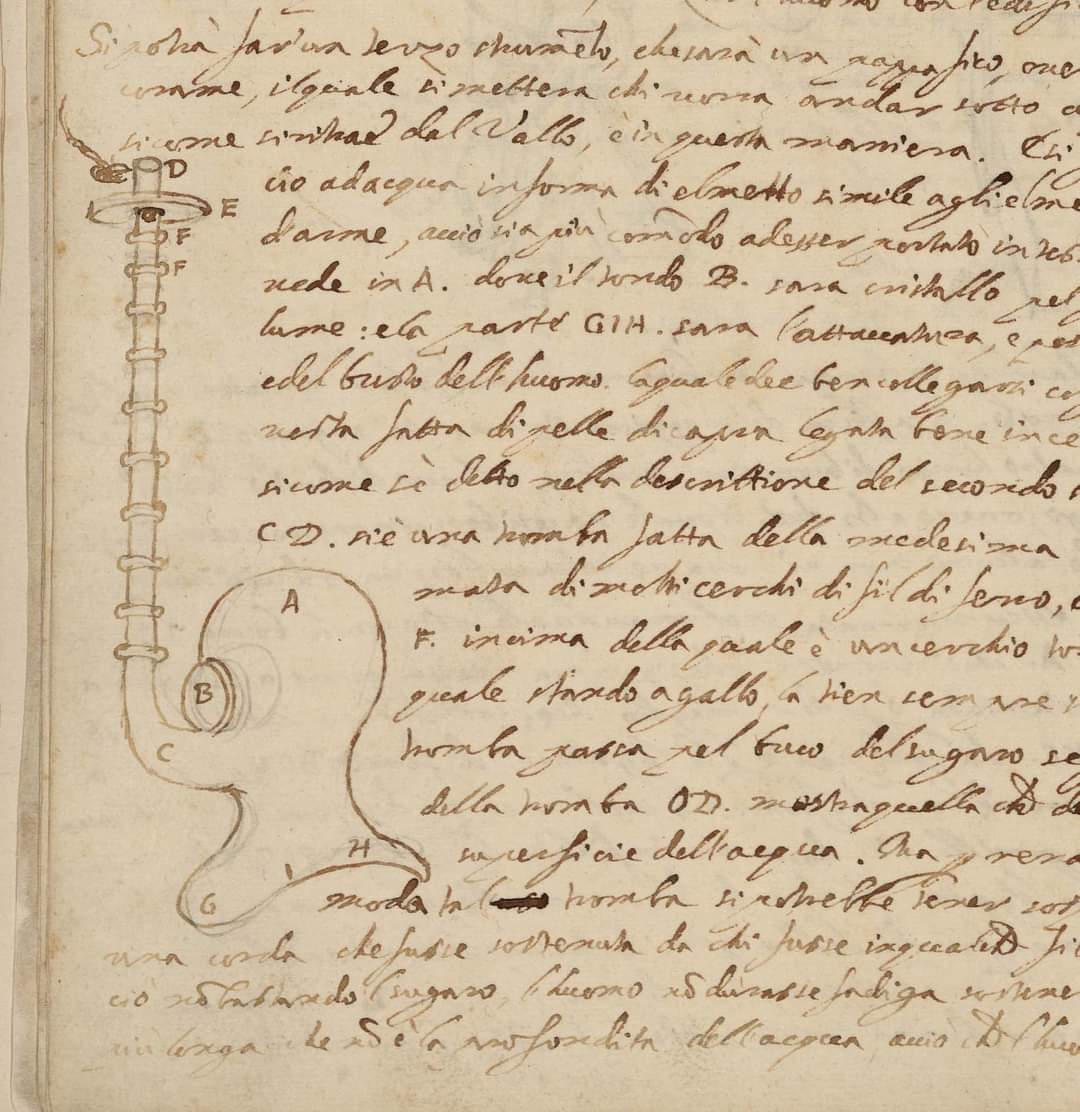 l'huomo con l'
Si potrà far' un terzo strumẽto, che sarà un papafico, over
corame, il quale si metterà chi vorrà andar sotto a
sicome si ritrae dal Vallo, è in questa maniera. Essi
D
cio ad acqua in forma di elmetto simile agli elme
E
d'arme, acciò sia più com̃odo adesser portato in tes
F
vede in A. dove il tondo B. sara cristallo pel
F
lume: e la parte GIH. sara l'attaccatura, e
e del busto dell'huomo. la quale dee ben collegarsi co
vesta fatta di pelle di capra legata bene in ce
sicome s'è detto nella descrittione del secondo
C D. si è una tromba fatta della medesima
A
mata di molti cerchi di fil di ferro,
F. in cima della quale è un cerchio
B
quale stando a gallo, la tien sempre
tromba passa pel buco del sugaro se
C
della tromba OD. mostra quella chẽ
H
superficie dell'acqua. Ma
I
G
moda tal tromba si potrebbe tener sos
una corda che fusse sostenuta da chi fusse in
ciò nõ bastando l sugaro, l'huomo nõ durasse fadiga sostener
più longa che nõ è la profondità dell'acqua acciò chẽ l'huo